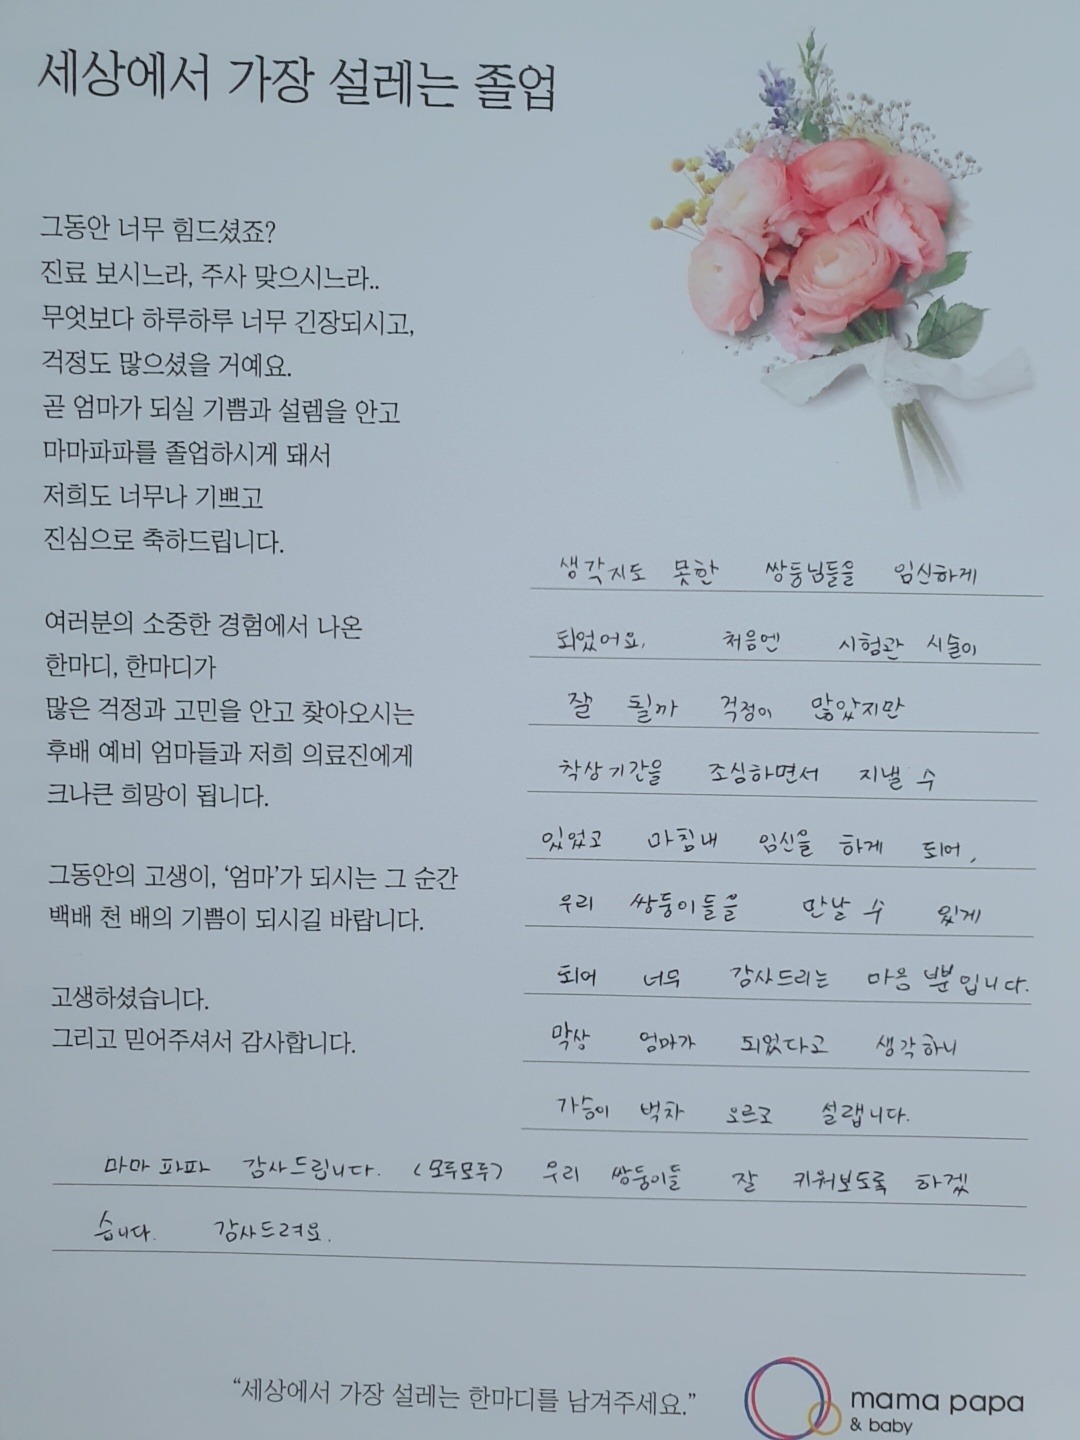 세상에서 가장 설레는 졸업
그동안 너무 힘드셨죠?
진료 보시느라, 주사 맞으시느라..
무엇보다 하루하루 너무 긴장되시고,
걱정도 많으셨을 거예요.
곧 엄마가 되실 기쁨과 설렘을 안고
마마파파를 졸업하시게 돼서
저희도 너무나 기쁘고
진심으로 축하드립니다.
여러분의 소중한 경험에서 나온
한마디, 한마디가
많은 걱정과 고민을 안고 찾아오시는
후배 예비 엄마들과 저희 의료진에게
크나큰 희망이 됩니다.
그동안의 고생이, ‘엄마’가 되시는 그 순간
백배 천 배의 기쁨이 되시길 바랍니다.
고생하셨습니다.
그리고 믿어주셔서 감사합니다.
생각지도 못한 쌍둥님들을 임신하게
되었어요. 처음엔 시험관 시술이
잘 될까 걱정이 많았지만
착상기간을 조심하면서 지낼 수
있었고 마침내 임신을 하게 되어,
우리 쌍둥이들을 만날 수 있게
되어 너무 감사드리는 마음 뿐입니다.
막상 엄마가 되었다고 생각하니
가슴이 벅차 오르고 설랩니다.
마마 파파 감사드립니다. (모두모두) 우리 쌍둥이들 잘 키워보도록 하겠
습니다. 감사드려요.
“세상에서 가장 설레는 한마디를 남겨주세요.”
mama papa
& baby